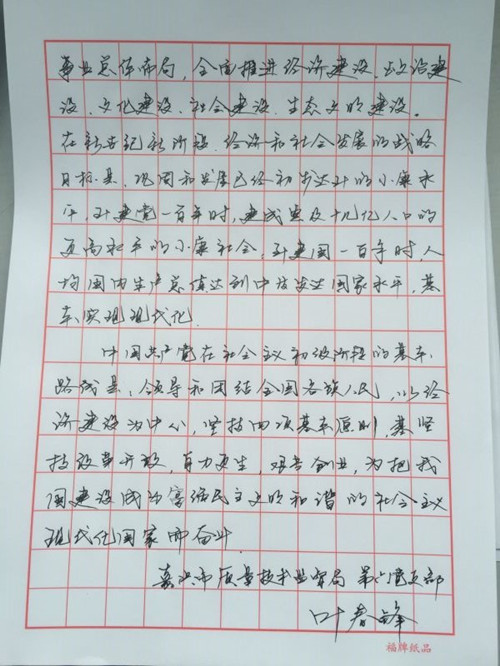 事业总体布局,全面推进经济建设、政治建
设、文化建设、社会建设、生态文明建设。
在新世纪新阶段,经济和社会发展的战略
目标是,巩固和发展已经初步达到的小康水
平,到建党一百年时,建成惠及十几亿人口的
更高水平的小康社会,到建国一百年时,人
均国内生产总值达到中等发达国家水平,基
本实现现代化。
中国共产党在社会主义初级阶段的基本
路线是:领导和团结全国各族人民,以经
济建设为中心,坚持四项基本原则,坚
持改革开放,自力更生,艰苦创业,为把我
国建设成为富强民主文明和谐的社会主义
现代化国家而奋斗。
嘉兴市质量技术监督局 第六党支部
叶春峰
福牌纸品